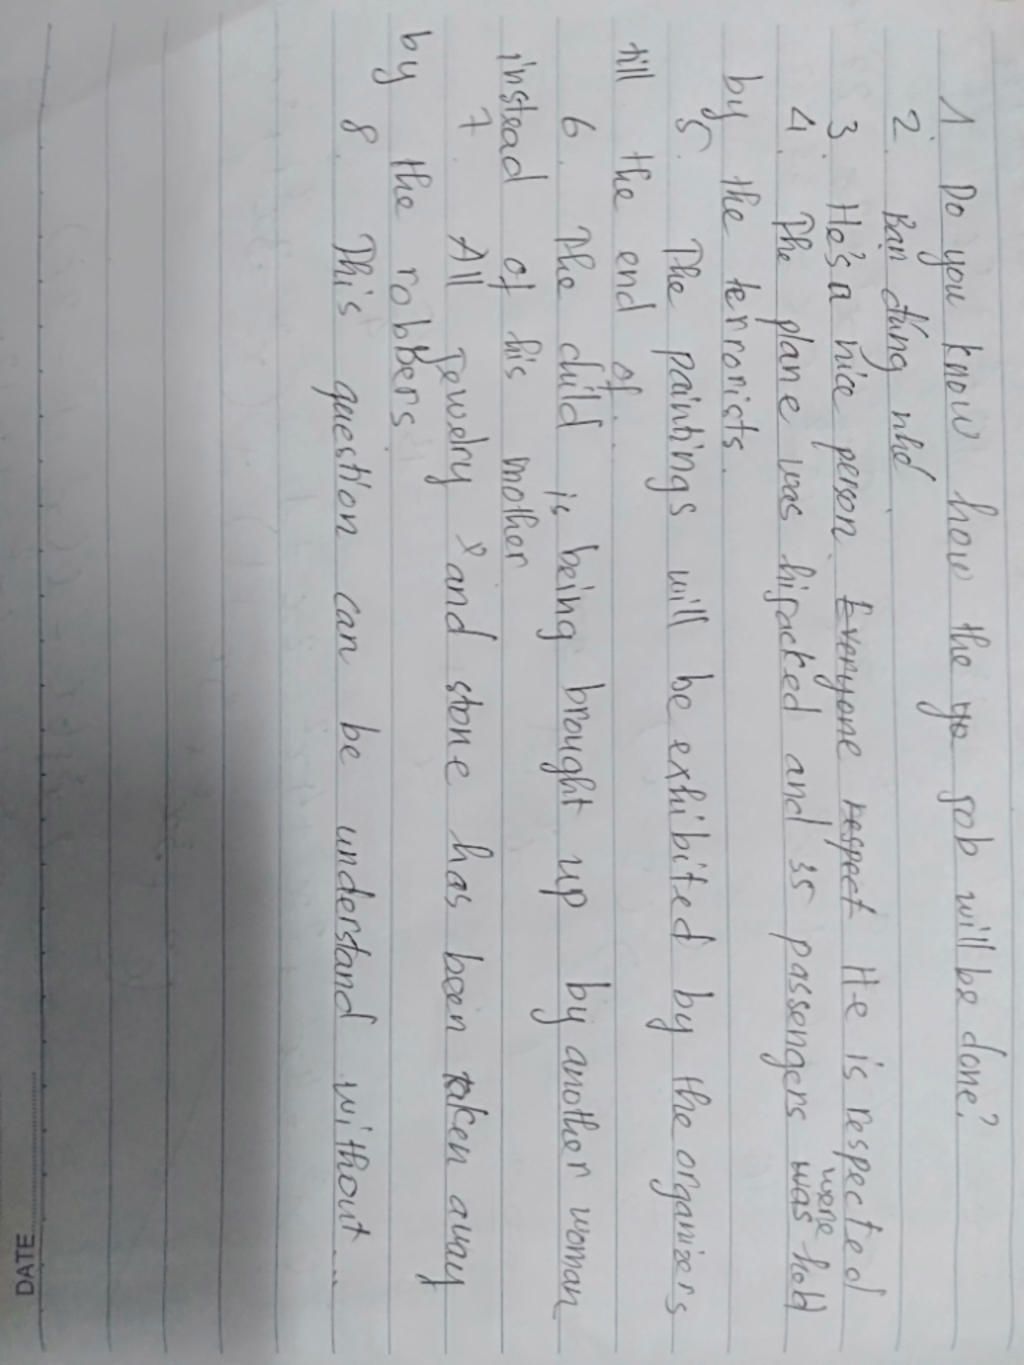 1 Do you know how the job will be done?
2. Bạn đúng nhé
3. He's a nice person. Everyone respect He is respected
4. The plane was hijacked and 35 passengers was were hold
by the terrorists.
5. The paintings will be exhibited by the organizers
till the end of...
6. The child is being brought up by another woman
instead of his mother
7. All Jewelry and stone has been taken away
by the robbers
8. This question can be understand without...
DATE